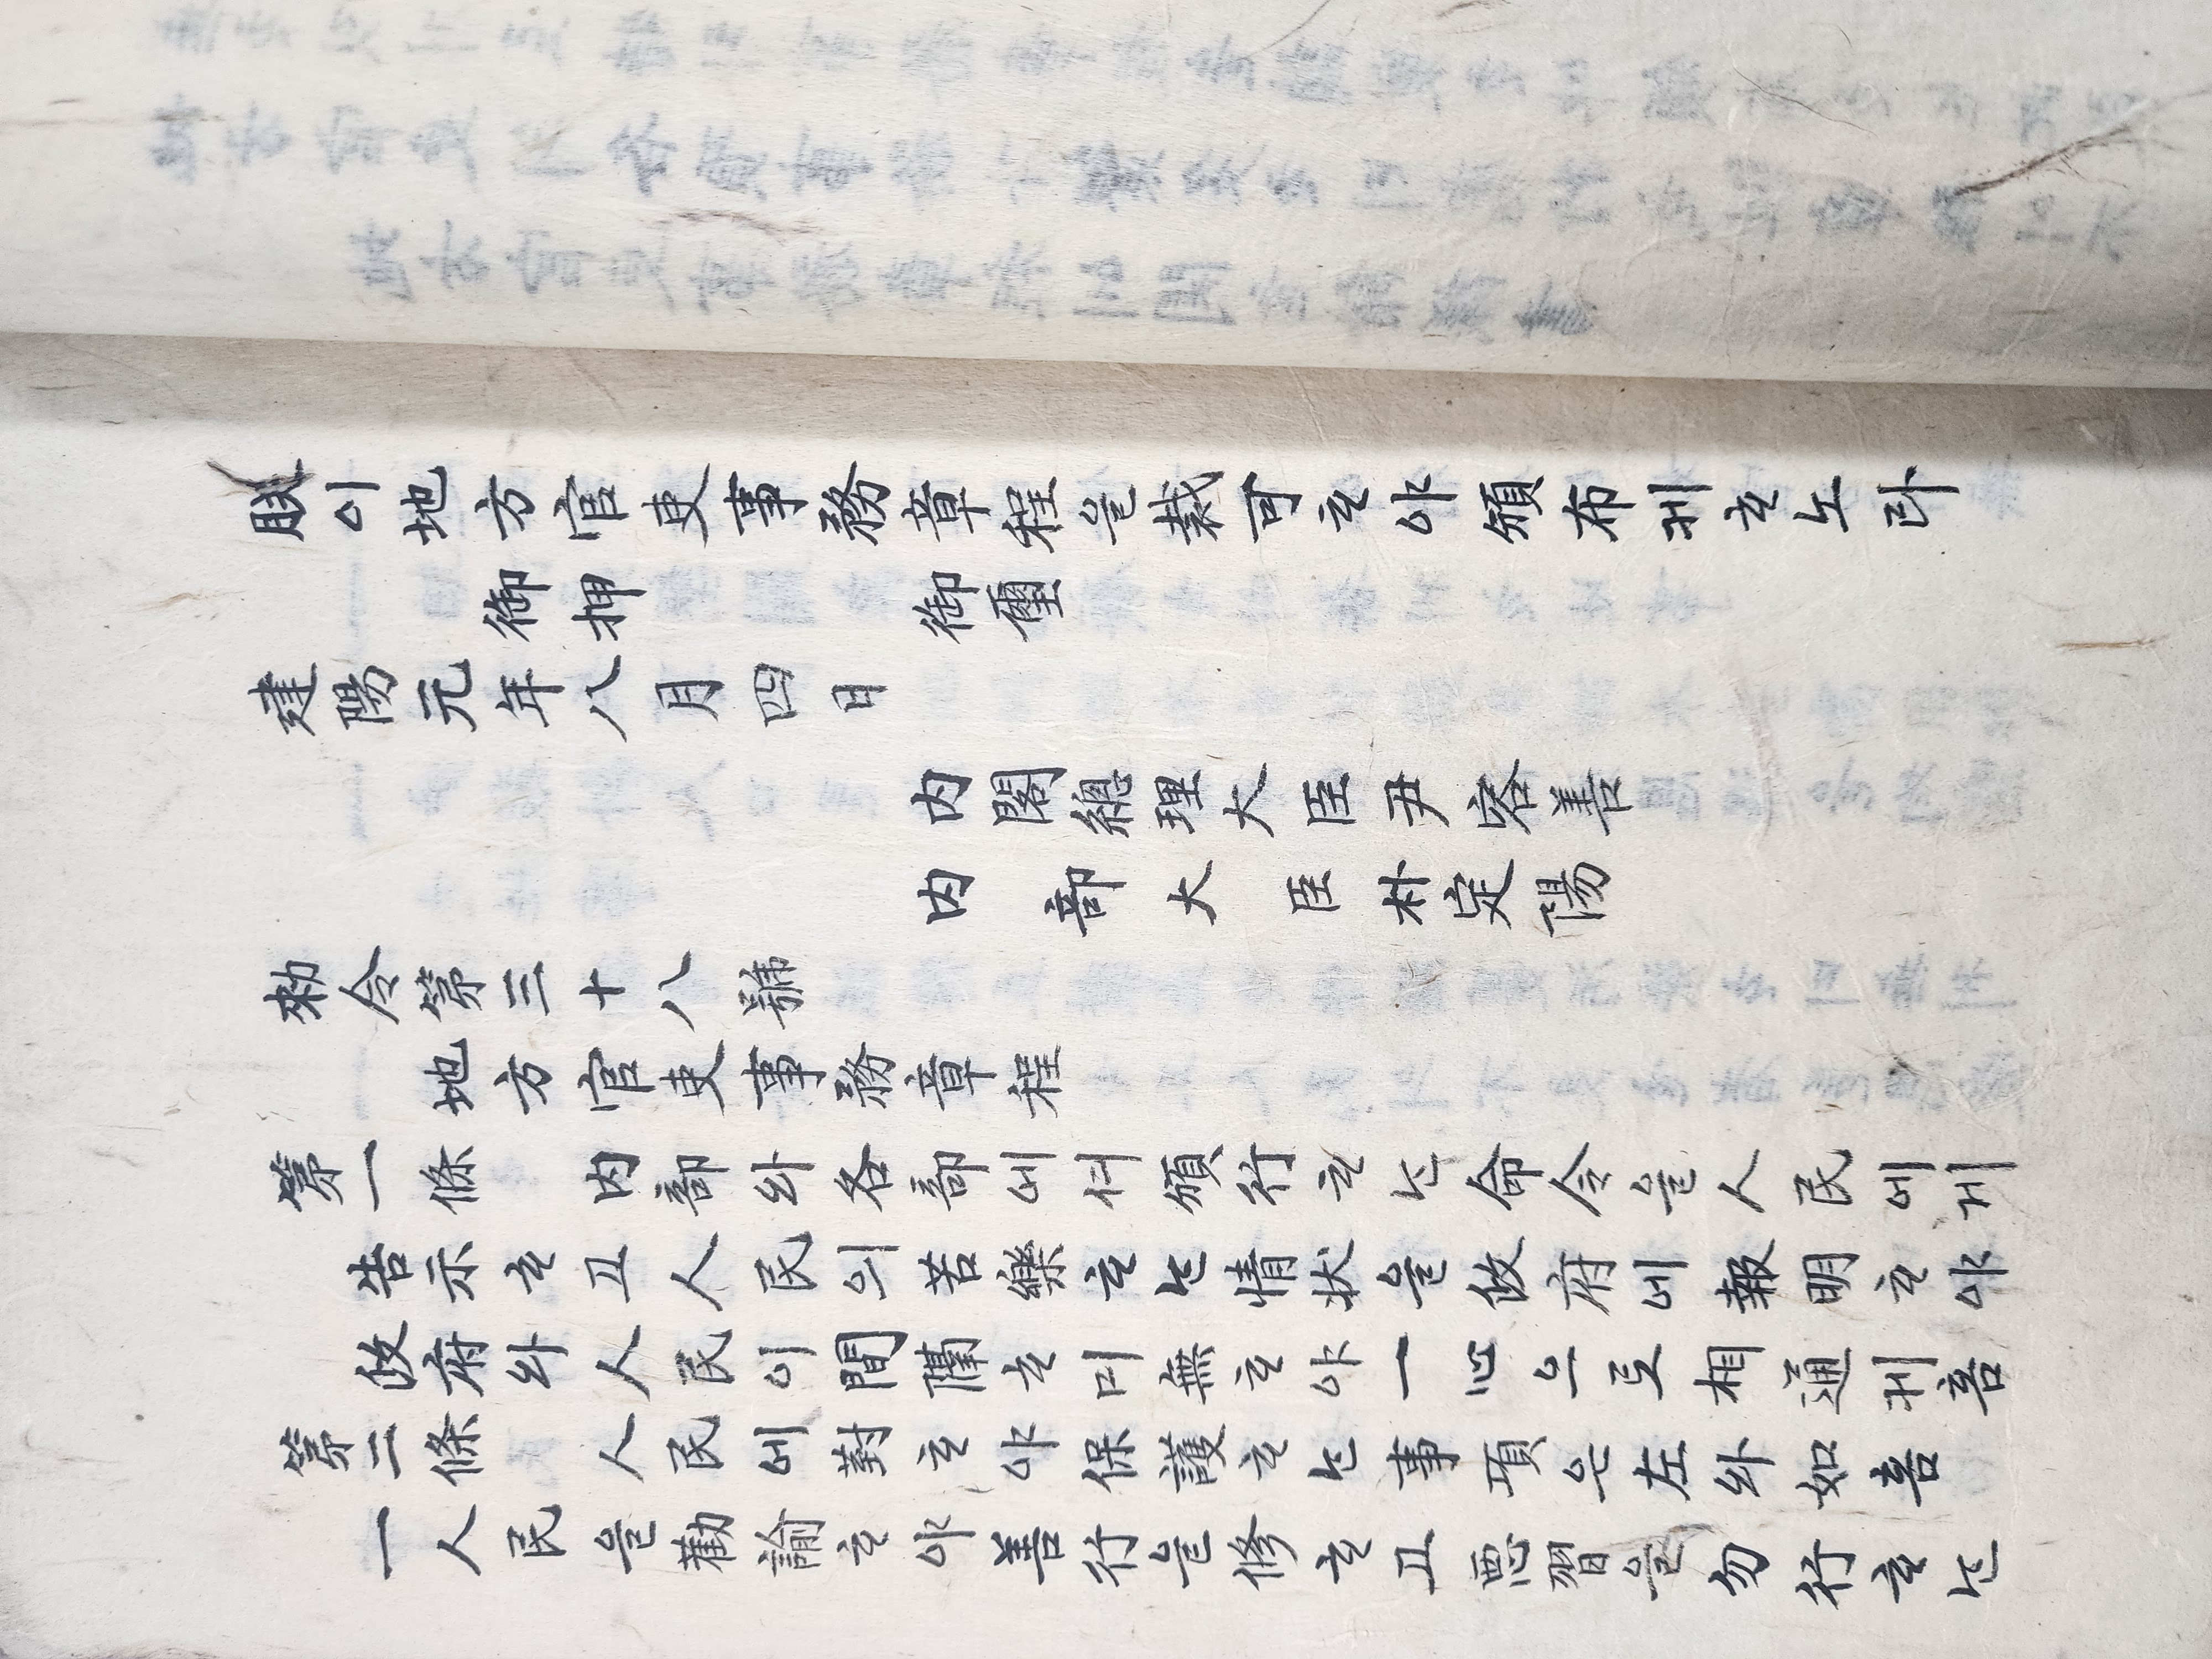 朕이地方官吏事務章程을裁可ᄒᆞ야頒布케ᄒᆞ노라
御押 御璽
建陽元年八月四日
内閣總理大臣尹容善
内部大臣朴定陽
勅令第三十八號
地方官吏事務章程
第一條 内部와各部에셔頒行ᄒᆞᄂᆞᆫ命令을人民에게
告示ᄒᆞ고人民의苦樂ᄒᆞᄂᆞᆫ情狀을政府에報明ᄒᆞ야
政府와人民이間隔ᄒᆞ미無ᄒᆞ야一心으로相通케홈
第二條 人民에對ᄒᆞ야保護ᄒᆞᄂᆞᆫ事項은左와如홈
一人民을勸諭ᄒᆞ야善行을修ᄒᆞ고悪習을勿行ᄒᆞᄂᆞᆫ